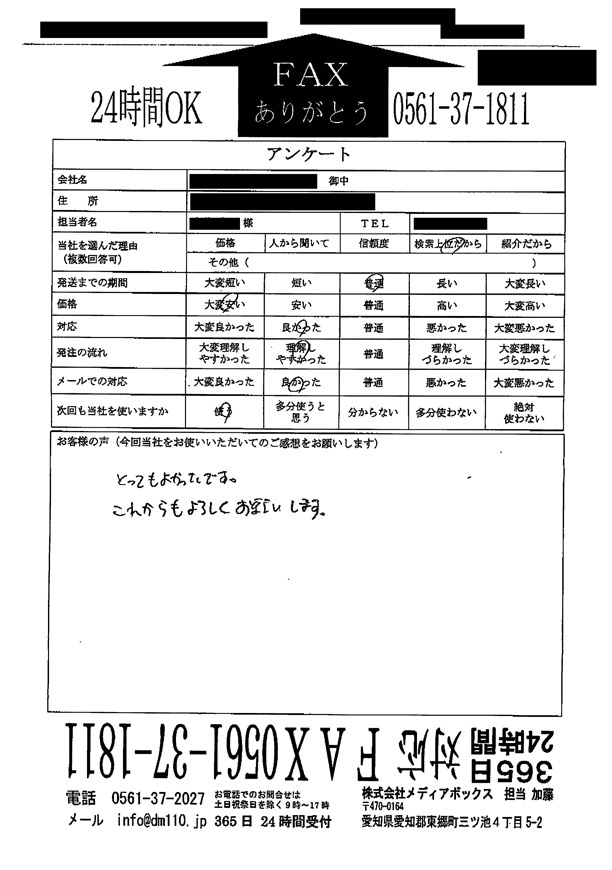 FAX
ありがとう
24時間OK
0561-37-1811
アンケート
会社名 御中
住　所
担当者名 様 TEL
当社を選んだ理由 価格 人から聞いて 信頼度 検索上位だから 紹介だから
（複数回答可） その他（ ）
発送までの期間 大変短い 短い 普通 長い 大変長い
価格 大変安い 安い 普通 高い 大変高い
対応 大変良かった 良かった 普通 悪かった 大変悪かった
発注の流れ 大変理解しやすかった 理解しやすかった 普通 理解しづらかった 大変理解しづらかった
メールでの対応 大変良かった 良かった 普通 悪かった 大変悪かった
次回も当社を使いますか 使う 多分使うと思う 分からない 多分使わない 絶対使わない
お客様の声（今回当社をお使いいただいてのご感想をお願いします）
とってもよかったです。
これからもよろしくお願いします。
365日24時間対応 FAX0561-37-1811
電話 0561-37-2027 お電話でのお問合せは土日祝祭日を除く9時〜17時
メール info@dm110.jp 365日24時間受付
株式会社メディアボックス 担当 加藤
〒470-0164
愛知県愛知郡東郷町三ツ池4丁目5-2